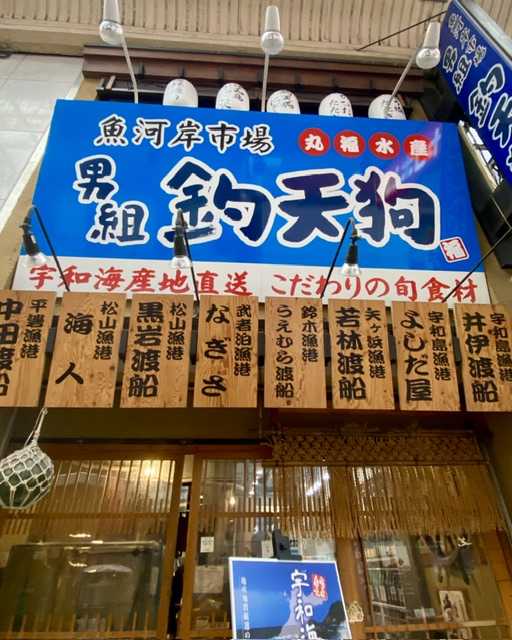 魚河岸市場
丸福水産
男組
釣天狗
福
宇和海産地直送 こだわりの旬食材
平岩漁港
中田渡船
松山漁港
海人
松山漁港
黒岩渡船
武者泊漁港
なぎさ
鈴木漁港
うえむら渡船
矢ヶ浜漁港
若林渡船
宇和島漁港
よしだ屋
宇和島漁港
井伊渡船
宇和海